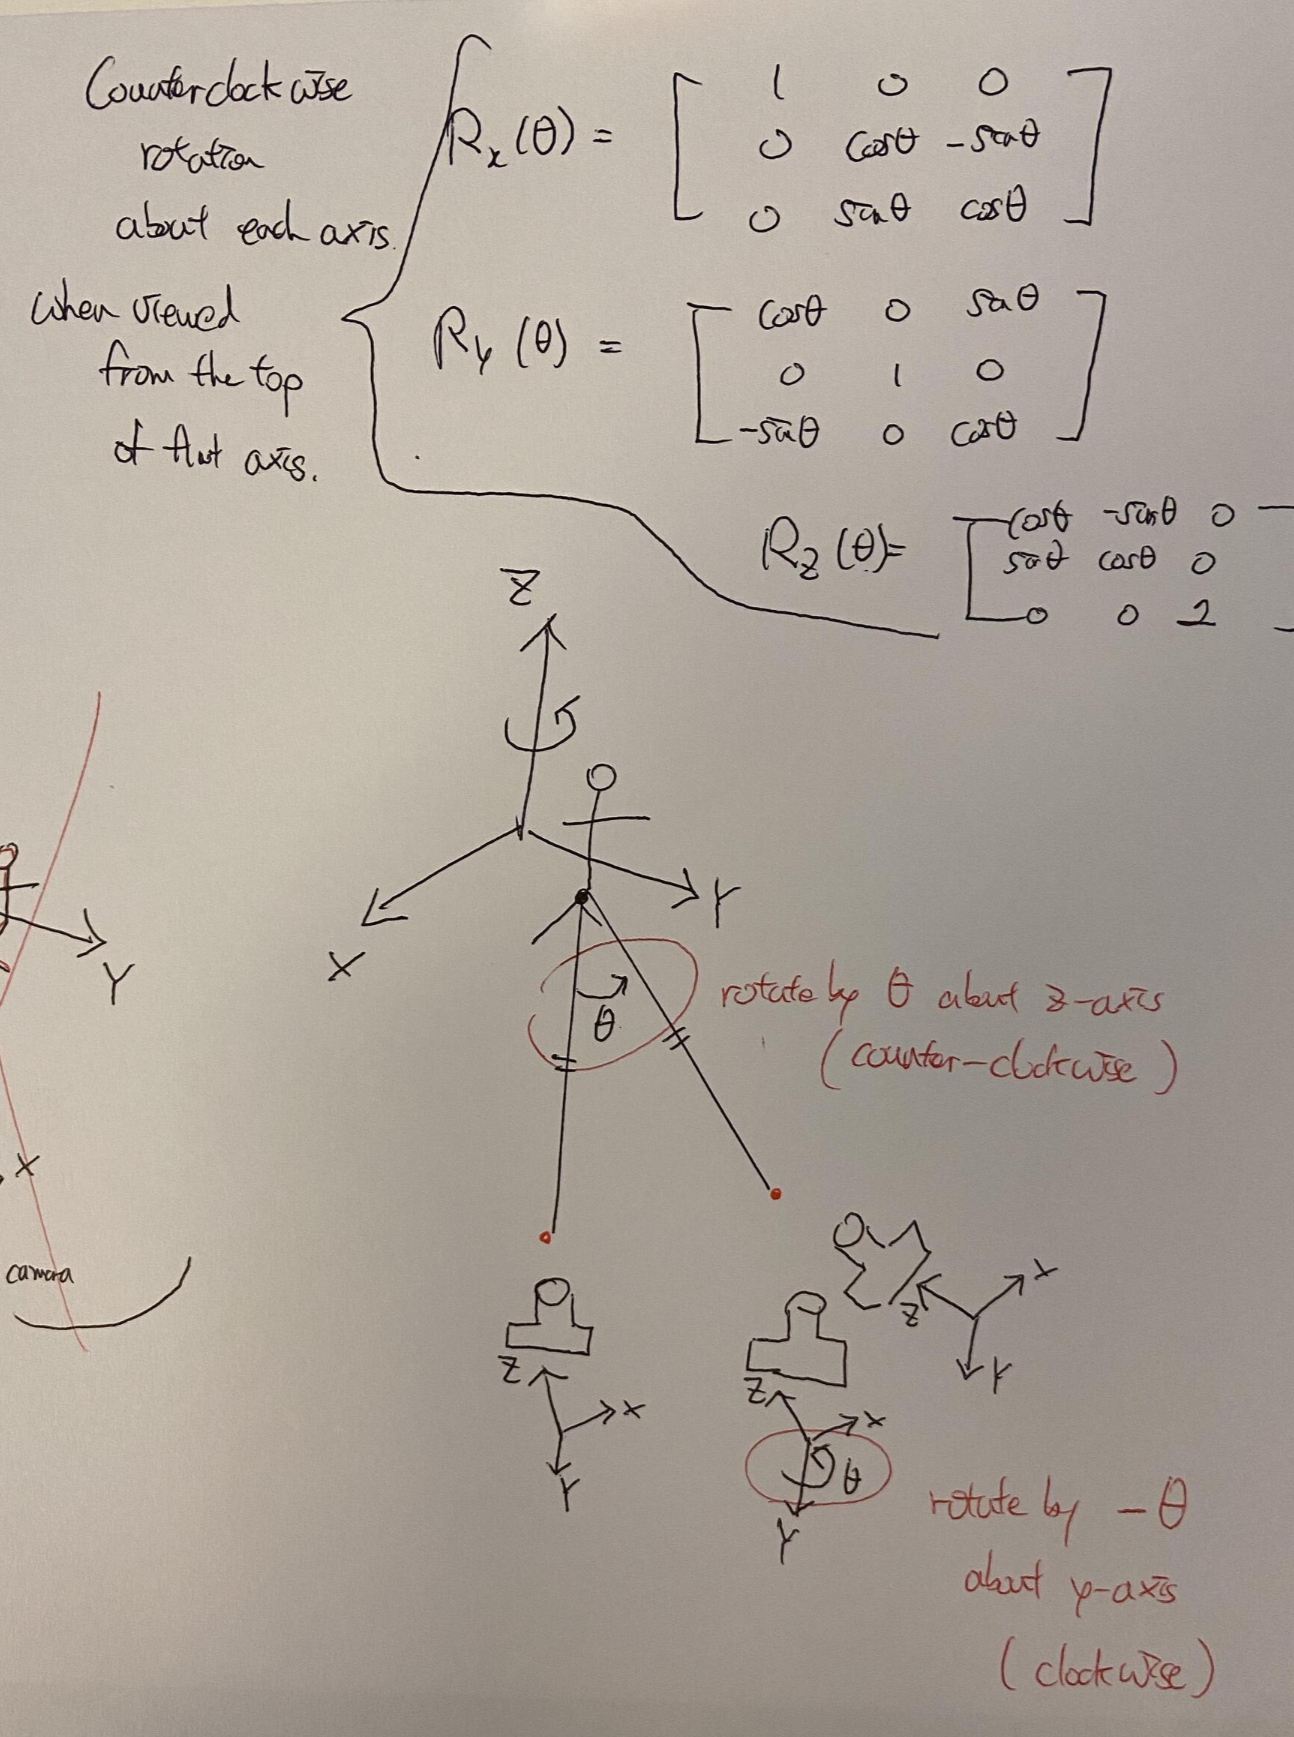 Counterclockwise
rotation
about each axis.
when viewed
from the top
of that axis.
Rx(θ) = [ 1 0 0
0 cosθ -sinθ
0 sinθ cosθ ]
Ry(θ) = [ cosθ 0 sinθ
0 1 0
-sinθ 0 cosθ ]
Rz(θ)= [ cosθ -sinθ 0
sinθ cosθ 0
0 0 1
Z
Y
X
Y
θ
rotate by θ about z-axis
(counter-clockwise)
X
camera
Z
X
Y
Z
X
Y
Z
X
θ
Y
rotate by -θ
about y-axis
(clockwise)